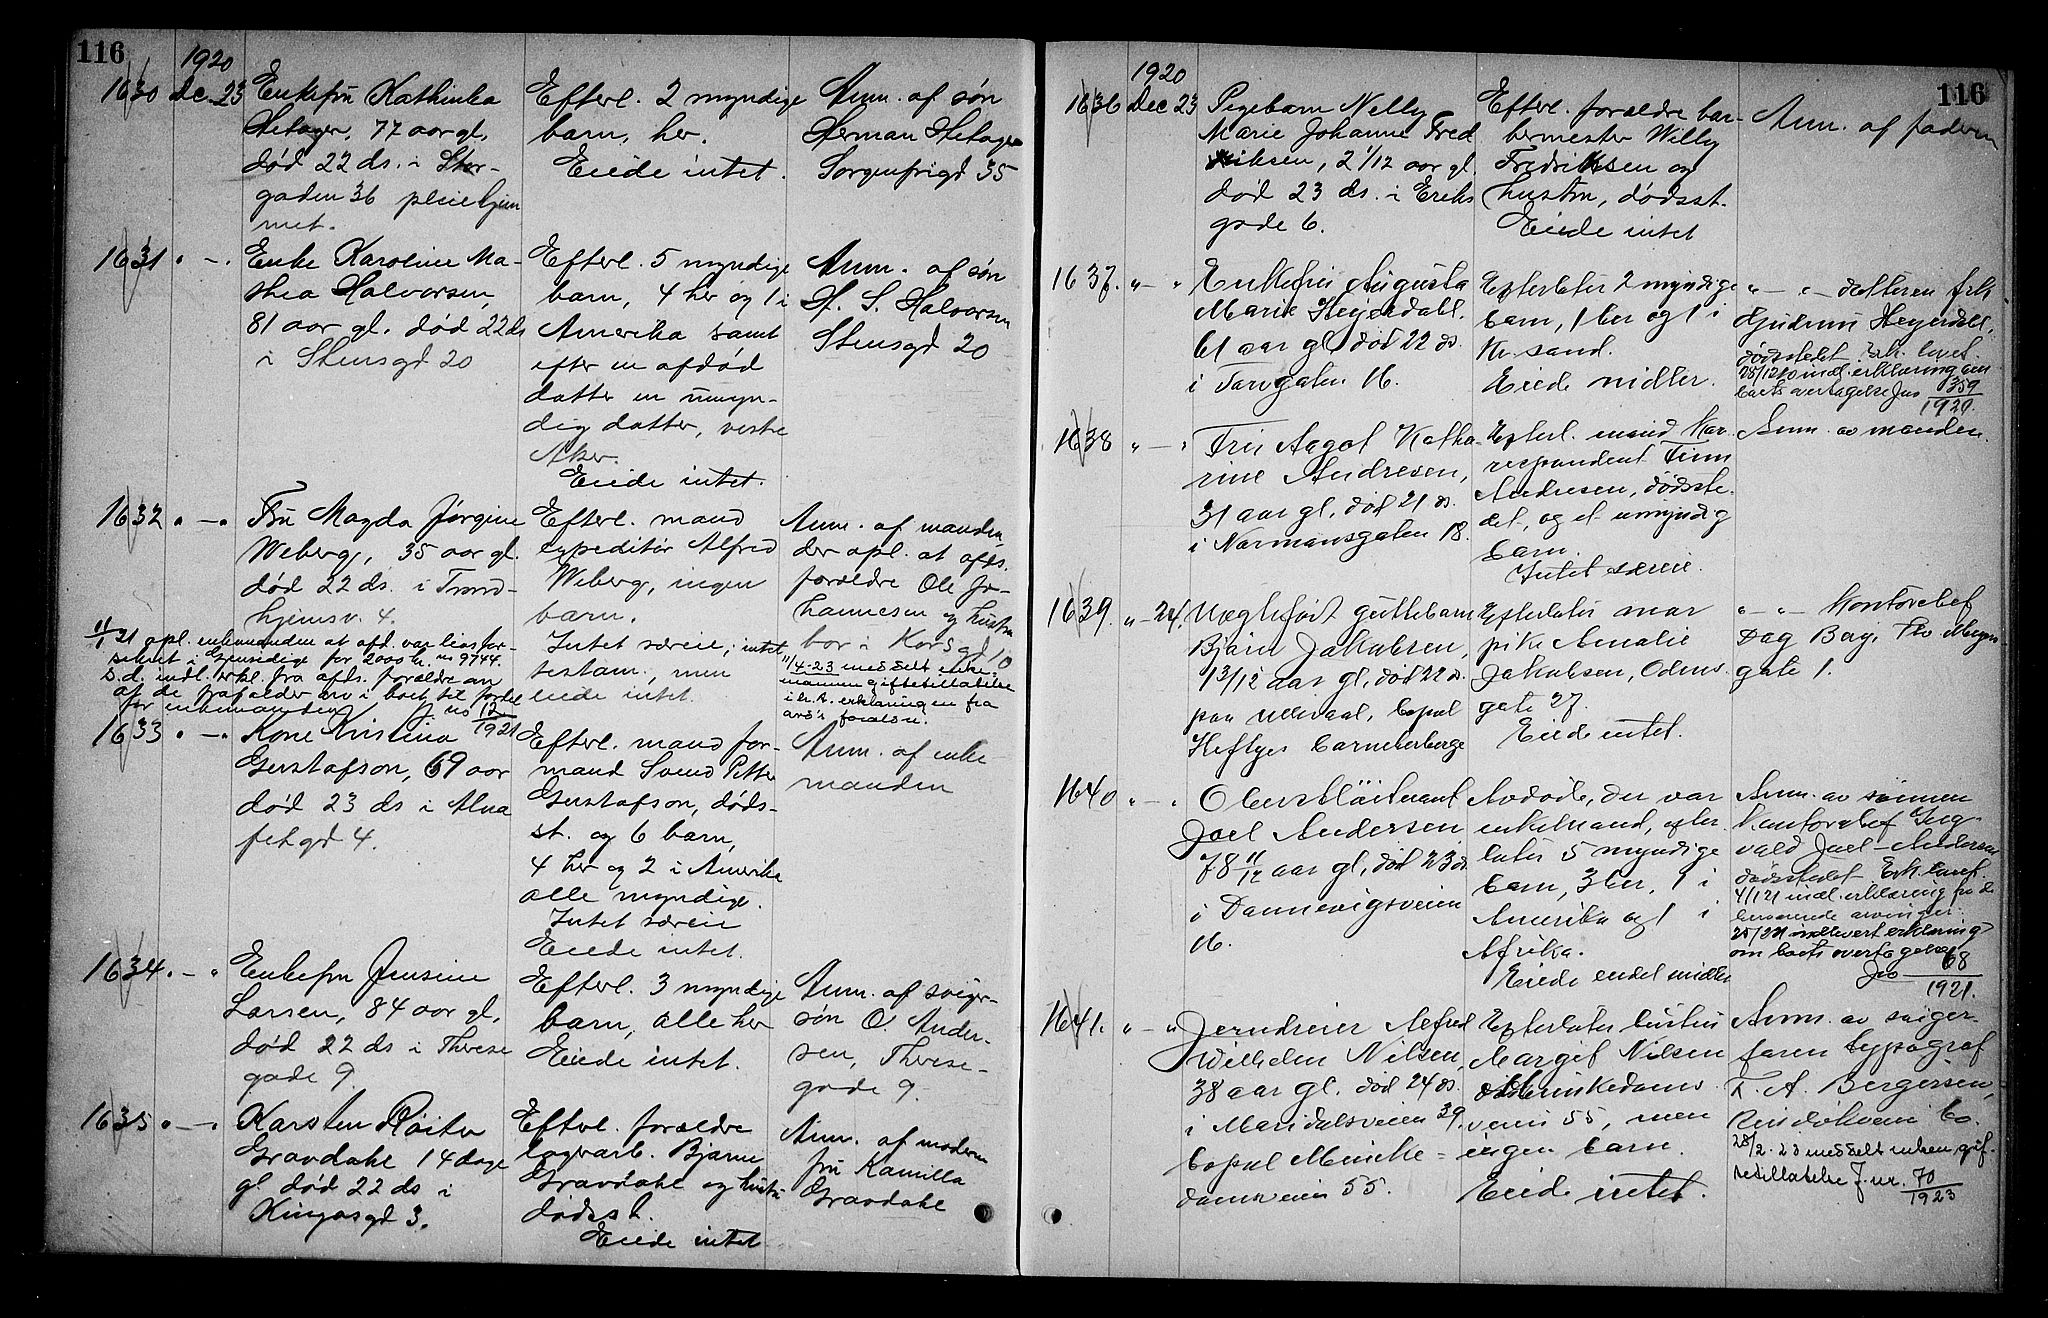 116
1920
1630 Dec 23 Enkefru Kathinka
Hetager, 77 aar gl.
død 22 ds. i Stor-
gaden 36 pleiehjem
met.
Efterl. 2 myndige
barn, her.
Eiede intet.
Anm. af søn
Herman Hetager
Sorgenfrigd 35
1631 " — " Enke Karoline Ma-
thea Halvorsen,
81 aar gl. død 22 ds
i Stensgd 20
Efterl. 5 myndige
barn, 4 her og 1 i
Amerika samt
efter en afdød
datter en umyn-
dig datter, vestre
Aker.
Eiede intet.
Anm. af søn
H. S. Halvorsen
Stensgd 20
1632 " — " Fru Magda Jørgine
Weberg, 35 aar gl.
død 22 ds. i Trond-
hjemsv. 4.
11/1 21 opl. enkemanden at afd. var livsfor-
sikret i Gjensidige for 2000 kr. no 9744.
s.d. indl. erkl. fra afds. forældre om
at de frafalder arv i boet til fordel
for enkemanden J. no 12/1921
Efterl. mand
expeditør Alfred
Weberg, ingen
barn.
Intet særeie, intet
testam., men
eiede intet.
Anm. af manden,
der opl. at afds.
forældre Ole Jo-
hannesen og hustru
bor i Korsgd 10
11/4-23 meddelt enke-
manden giftetilladelse
i h. t. erklæringen fra
avd's foreldre.
1633 " — " Kone Kristina
Gustafson, 69 aar
død 23 ds i Alna
fetgd 4.
Efterl. mand for-
mand Svend Petter
Gustafson, døds-
st. og 6 barn,
4 her og 2 i Amerika
alle myndige.
Intet særeie
Eiede intet.
Anm. af enke-
manden
1634 " — " Enkefru Jensine
Larsen, 84 aar gl.
død 22 ds i Therese
gade 9.
Efterl. 3 myndige
barn, alle her
Eiede intet.
Anm. af sviger-
søn O. Ander-
sen, Therese-
gade 9.
1635 " — " Karsten Røiter
Gravdahl 14 dage
gl død 22 ds i
Kingosgd 3.
Efterl. forældre
lagerarb. Bjarne
Gravdahl og hustru
dødsst.
Eiede intet
Anm. af moderen
fru Kamilla
Gravdahl
116
1920
1636 Dec 23 Pigebarn Nelly
Marie Johanne Fred
riksen, 2 1/12 aar gl.
død 23 ds. i Eriks
gade 6.
Efterl. forældre bar-
bermester Willy
Fredriksen og
hustru, dødsst.
Eiede intet
Anm. af faderen
1637. " — " Enkefru Augusta
Marie Heyerdahl.
61 aar gl, død 22 ds.
i Torvgaten 16.
Efterlater 2 myndige
barn, 1 her og 1 i
Kr.sand.
Eiede midler.
" — " — datteren frk
Gudrun Heyerdahl,
dødsstedet. Erk. lovet.
28/12 20 indl. erklæring om
boets overtagelse Jno 359/1920.
1638 " — " Fru Aagot Katha-
rine Andresen,
31 aar gl, død 21 ds.
i Normansgaten 18.
Efterl. mand Kor-
respondent Finn
Andresen, dødsste-
det, og et umyndig
barn.
Intet særeie.
Anm. av manden.
1639. " — 24. Uegtefødt guttebarn
Bjørn Jakobsen,
1 3/12 aar gl, død 22 ds.
paa Ullevaal, bopæl
Heftyes barneherberge
Efterlater mor
pike Amalie
Jakobsen, Odins
gate 27.
Eiede intet.
" — " — Kontorchef
Dag Berg, Tho Meyers
gate 1.
1640 " — " Oberstløitnant
Joel Andersen
78 11/12 aar gl, død 23 ds
i Dannevigsveien
16.
Avdøde, der var
enkemand, efter
later 5 myndige
barn, 3 her, 1 i
Amerika og 1 i
Afrika.
Eiede endel midler
Anm. av sønnen
Kontorchef Ing-
vald Joel-Andersen
dødsstedet Erk. lovet.
4/1 21 indl. erklæring fra de
herværende arvinger.
25/2 21 indlevert erklæring
om boets overtagelse
Jno 68/1921.
1641. " — " Jerndreier Alfred
Wilhelm Nilsen,
38 aar gl. død 24 ds.
i Maridalsveien 39,
bopæl Munke-
damsveien 55.
Efterlater hustru
Margit Nilsen
Munkedams
veien 55, men
ingen barn.
Eiede intet.
Anm. av sviger
faren typograf
F. A. Bergersen,
28/2.23 meddelt enken gif-
tetilladelse J. nr. 70/1923